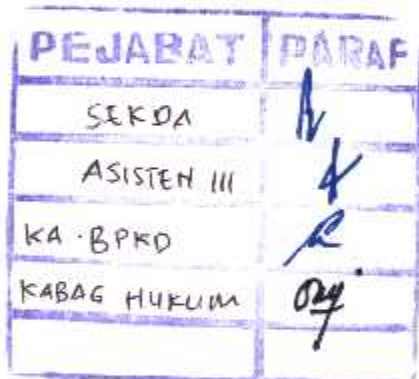 PEJABAT PARAF
SEKDA
ASISTEN III
KA.BPKD
KABAG HUKUM